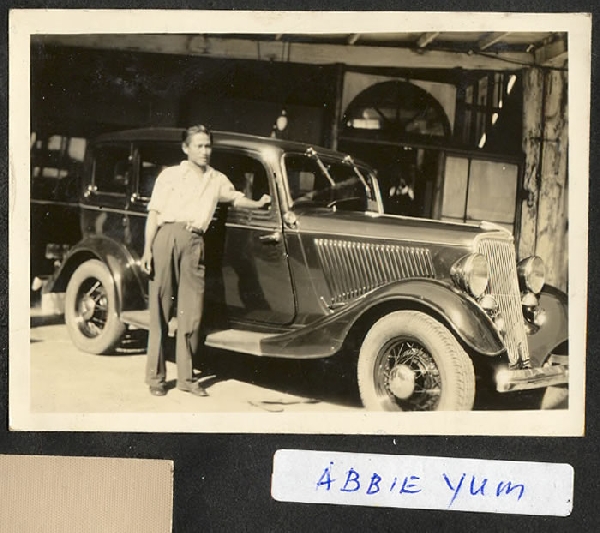 ABBIE YUM